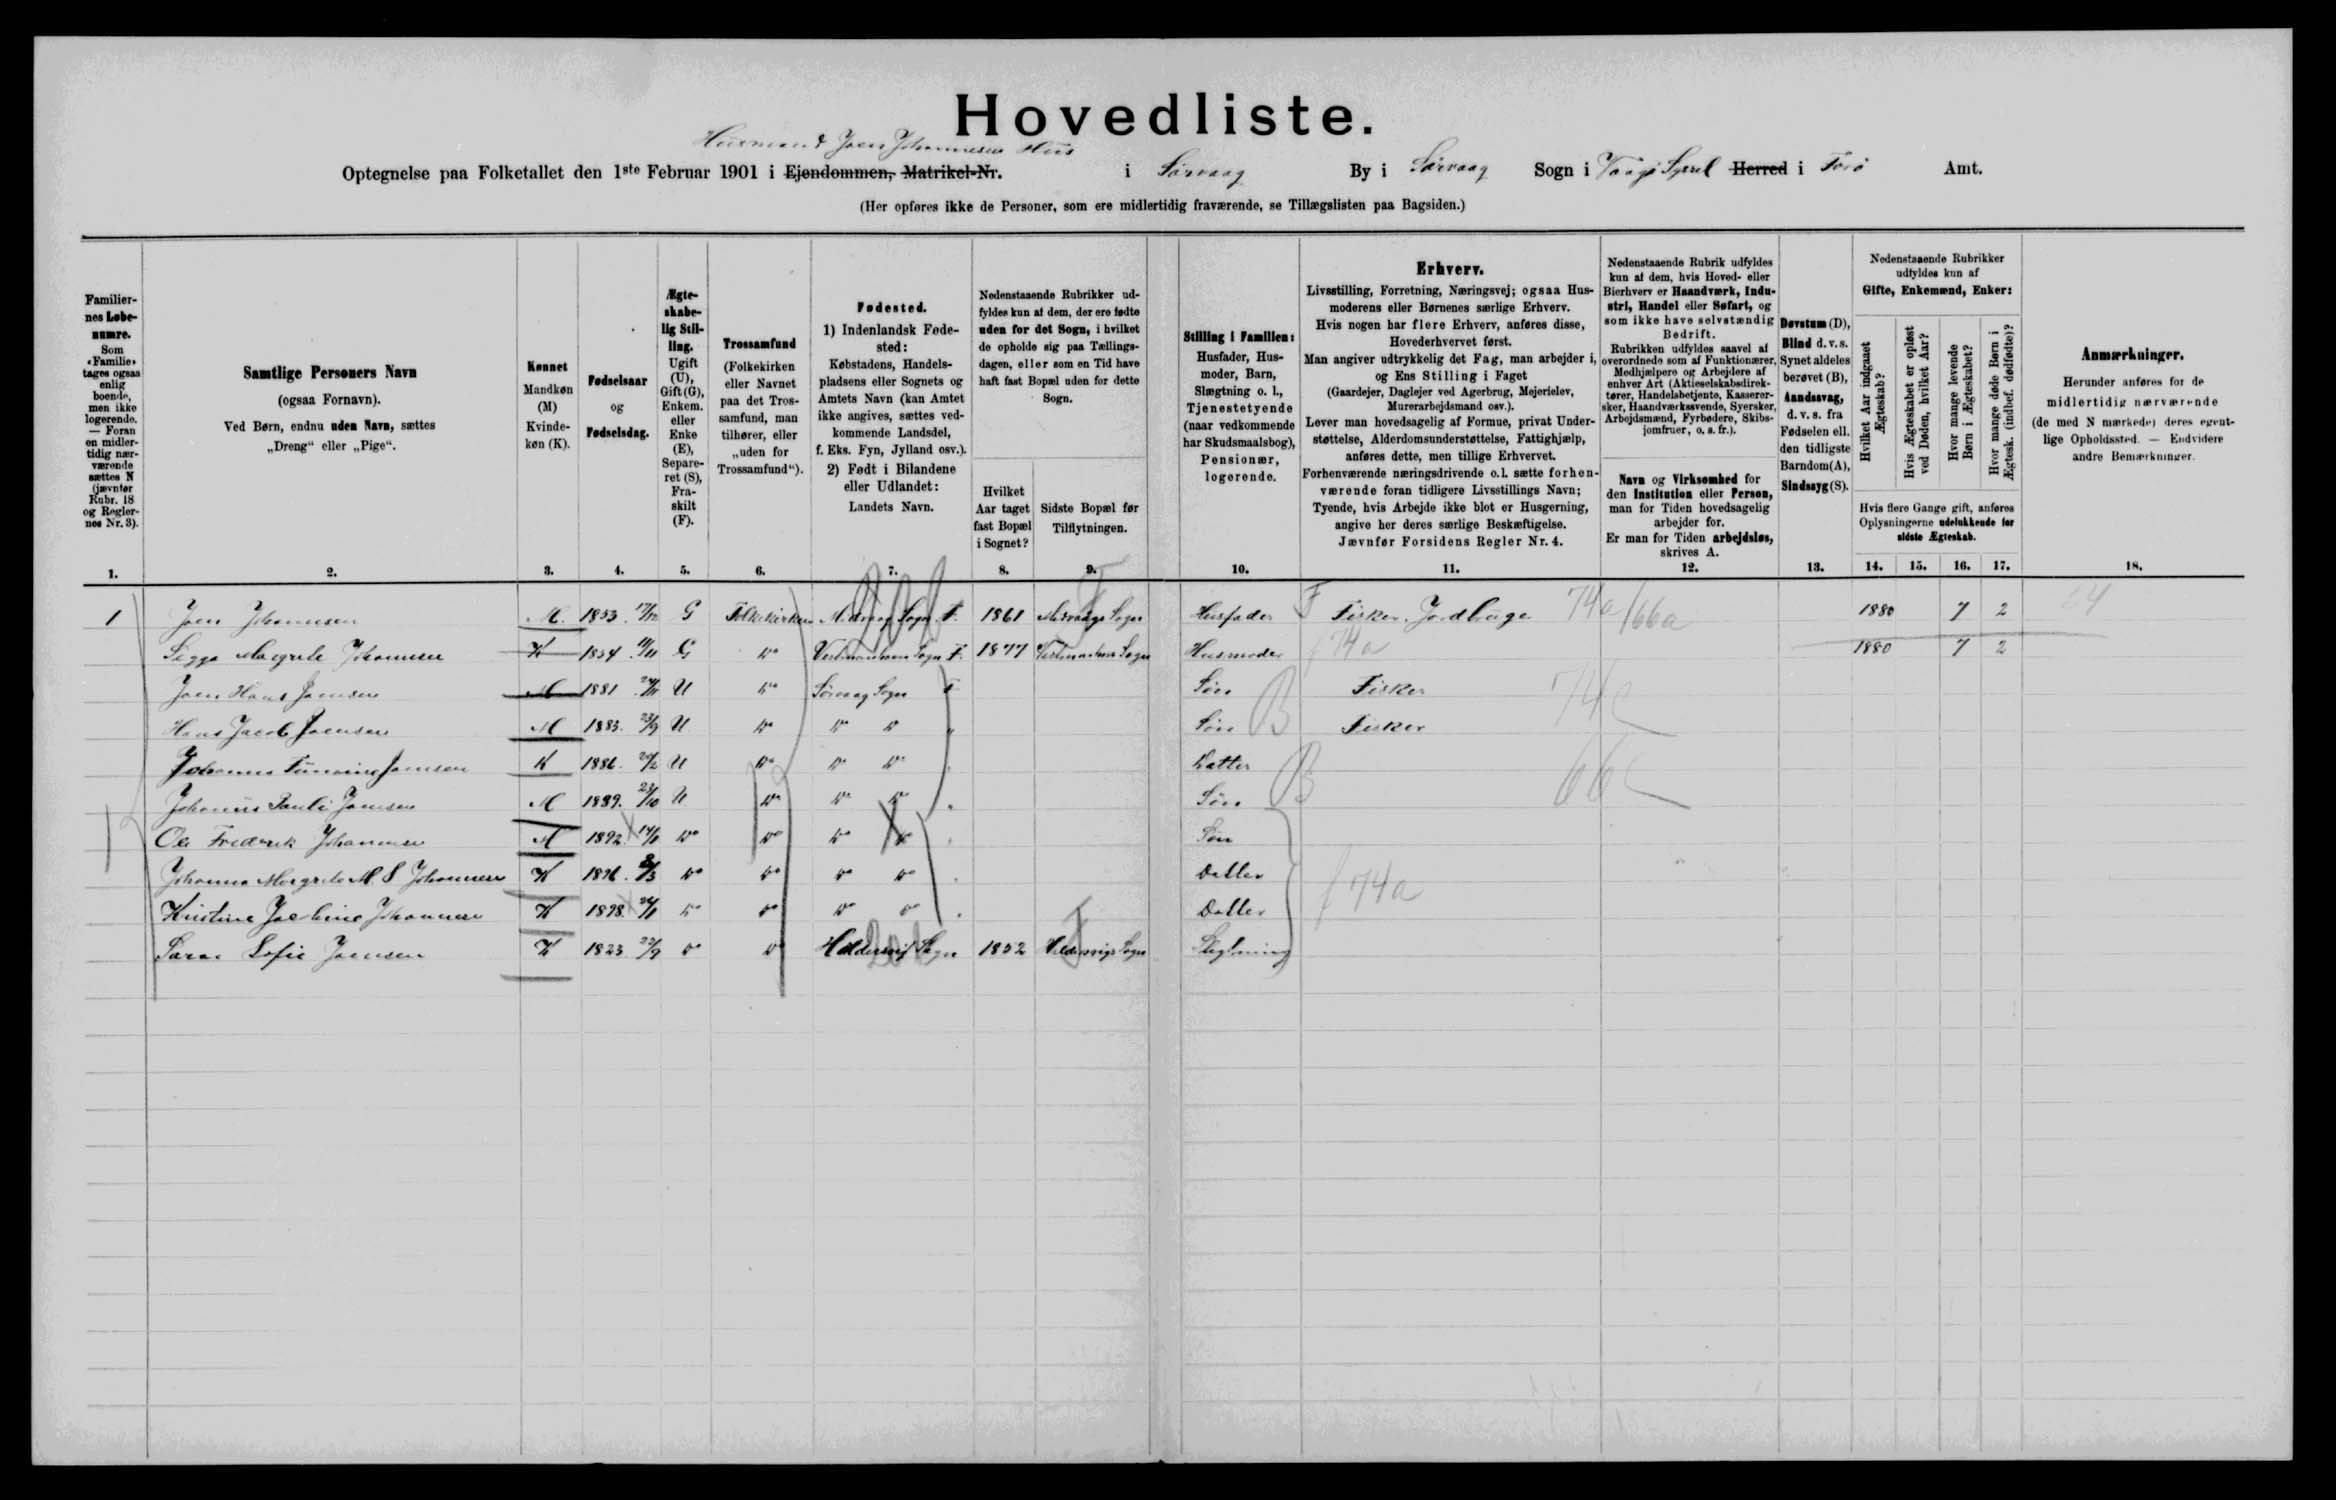 Hovedliste.
Husmand Joen Johannesens Hus
Optegnelse paa Folketallet den 1ste Februar 1901 i Ejendommen, Matrikel-Nr. i Sörvaag By i Sörvaag Sogn i Vaagö Syssel Herred i Färö Amt.
(Her opføres ikke de Personer, som ere midlertidig fraværende, se Tillægslisten paa Bagsiden.)
Familiernes Løbenumre.
Som «Familie» tages ogsaa enlig boende, men ikke logerende. — Foran en midlertidig nærværende sættes N (jævnfør Rubr. 18 og Reglernes Nr. 3).
Samtlige Personers Navn
(ogsaa Fornavn).
Ved Børn, endnu uden Navn, sættes
„Dreng“ eller „Pige“.
Kønnet
Mandkøn (M)
Kvindekøn (K).
Fødselsaar
og
Fødselsdag.
Ægteskabelig Stilling.
Ugift (U), Gift (G), Enkem. eller Enke (E), Separeret (S), Fraskilt (F).
Trossamfund
(Folkekirken eller Navnet paa det Trossamfund, man tilhører, eller „uden for Trossamfund“).
Fødested.
1) Indenlandsk Fødested:
Købstadens, Handelspladsens eller Sognets og Amtets Navn (kan Amtet ikke angives, sættes vedkommende Landsdel, f. Eks. Fyn, Jylland osv.).
2) Født i Bilandene eller Udlandet:
Landets Navn.
Nedenstaaende Rubrikker udfyldes kun af dem, der ere fødte uden for det Sogn, i hvilket de opholde sig paa Tællingsdagen, eller som en Tid have haft fast Bopæl uden for dette Sogn.
Hvilket Aar taget fast Bopæl i Sognet?
Sidste Bopæl før Tilflytningen.
Stilling i Familien:
Husfader, Husmoder, Barn, Slægtning o. l., Tjenestetyende (naar vedkommende har Skudsmaalsbog), Pensionær, logerende.
Erhverv.
Livsstilling, Forretning, Næringsvej; ogsaa Husmoderens eller Børnenes særlige Erhverv.
Hvis nogen har flere Erhverv, anføres disse, Hovederhvervet først.
Man angiver udtrykkelig det Fag, man arbejder i, og Ens Stilling i Faget
(Gaardejer, Daglejer ved Agerbrug, Mejerielev, Murerarbejdsmand osv.).
Lever man hovedsagelig af Formue, privat Understøttelse, Alderdomsunderstøttelse, Fattighjælp, anføres dette, men tillige Erhvervet.
Forhenværende næringsdrivende o.l. sætte forhenværende foran tidligere Livsstillings Navn;
Tyende, hvis Arbejde ikke blot er Husgerning, angive her deres særlige Beskæftigelse.
Jævnfør Forsidens Regler Nr. 4.
Nedenstaaende Rubrik udfyldes kun af dem, hvis Hoved- eller Bierhverv er Haandværk, Industri, Handel eller Søfart, og som ikke have selvstændig Bedrift.
Rubrikken udfyldes saavel af overordnede som af Funktionærer, Medhjælpere og Arbejdere af enhver Art (Aktieselskabsdirektører, Handelsbetjente, Kasserersker, Haandværkssvende, Syersker, Arbejdsmænd, Fyrbødere, Skibsjomfruer, o. s. fr.).
Navn og Virksomhed for den Institution eller Person, man for Tiden hovedsagelig arbejder for.
Er man for Tiden arbejdsløs, skrives A.
Døvstum (D),
Blind d. v. s. Synet aldeles berøvet (B),
Aandssvag, d. v. s. fra Fødselen ell. den tidligste Barndom (A),
Sindssyg (S).
Nedenstaaende Rubrikker udfyldes kun af
Gifte, Enkemænd, Enker:
Hvilket Aar indgaaet Ægteskab?
Hvis Ægteskabet er opløst ved Døden, hvilket Aar?
Hvor mange levende Børn i Ægteskabet?
Hvor mange døde Børn i Ægtesk. (indbef. dødfødte)?
Hvis flere Gange gift, anføres Oplysningerne udelukkende for sidste Ægteskab.
Anmærkninger.
Herunder anføres for de midlertidig nærværende (de med N mærkede) deres egentlige Opholdssted. — Endvidere andre Bemærkninger.
1. 2. 3. 4. 5. 6. 7. 8. 9. 10. 11. 12. 13. 14. 15. 16. 17. 18.
1 Joen Johannesen M. 1853. 17/12 G Folkekirken Midvaag Sogn F. 1861 Midvaags Sogn Husfader F Fisker. Jordbruger 74a/66a 1880 7 2 24
Sigga Margrete Johannesen K 1854 11/11 G do Vestmanhavn Sogn F. 1877 Vestmanhavn Sogn Husmoder f 74a 1880 7 2
Joen Hans Joensen M 1881 U do Sörvaag Sogn F. Sön Fisker 74c
Hans Jacob Joensen M 1883. 23/9 U do do do Sön B Fisker
Johanna Joensen K 1886. U do do do Datter B 66c
Johannes Pauli Joensen M 1889. 23/10 U do do do Sön
Ole Frederik Johannesen M 1892 do do do do Sön
Johanna Margrete M. S Johannesen K 1896. do do do do Datter f 74a
Kristine Jacobine Johannesen K 1898. do do do do Datter
Sara Sofie Joensen K 1823 22/9 do do Haldersvig Sogn 1852 Haldersvigs Sogn Slegtning